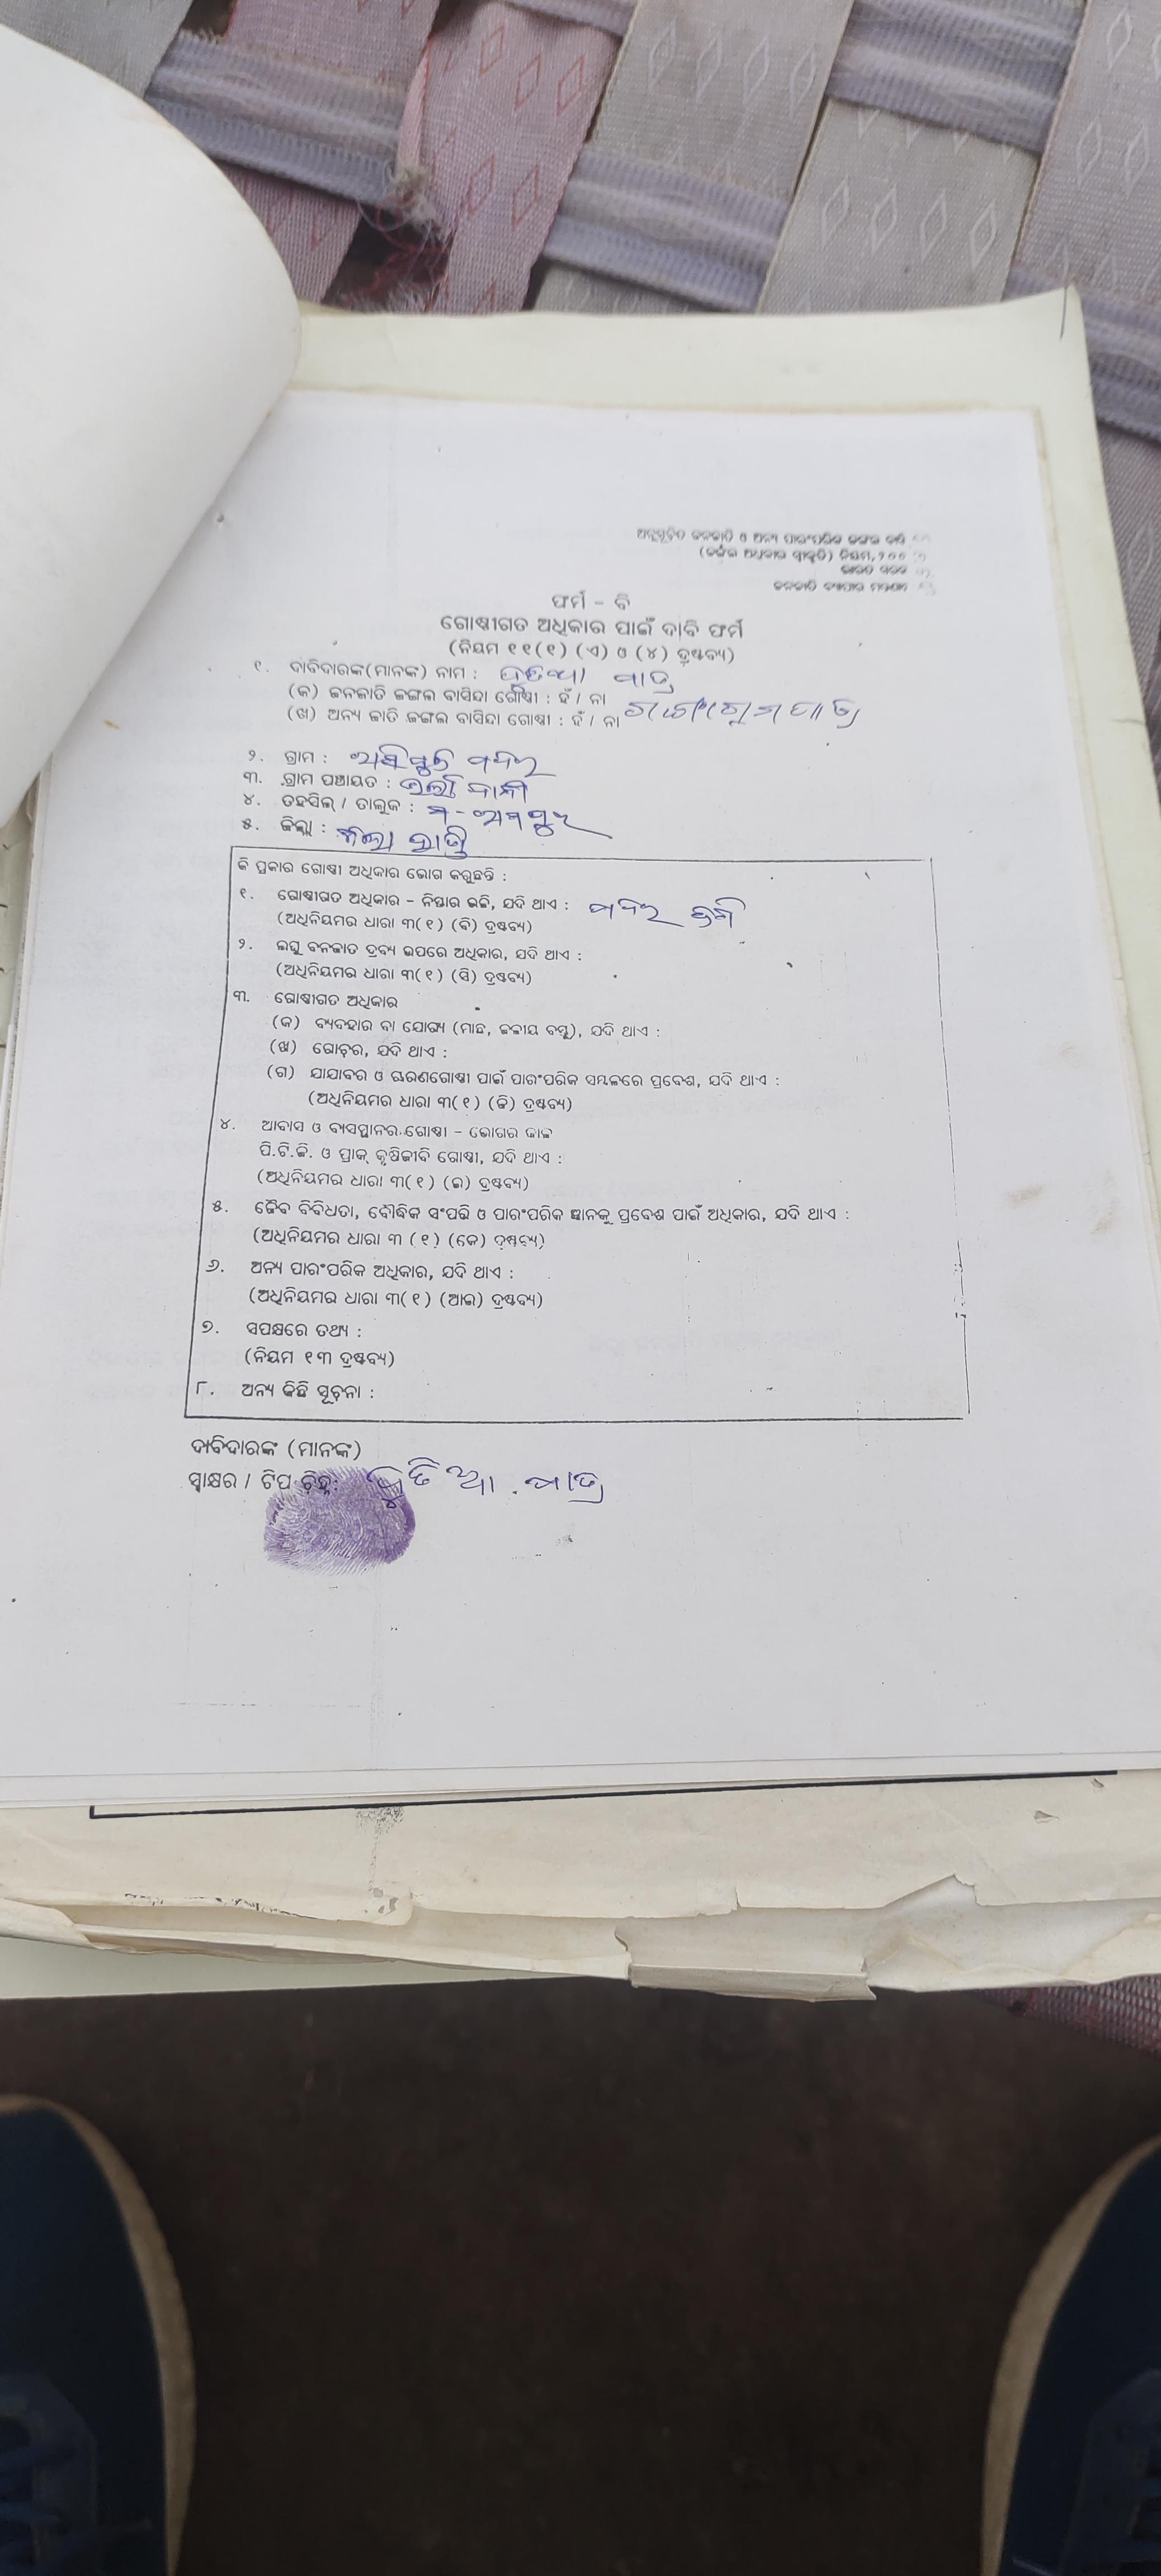 ଅନୁସୂଚିତ ଜନଜାତି ଓ ଅନ୍ୟ ପାରଂପରିକ ଜଙ୍ଗଲ ବାସୀ
(ଜଙ୍ଗଲ ଅଧିକାର ସ୍ବୀକୃତି) ନିୟମ, ୨୦୦
ଭାରତ ସରକାର
ଜନଜାତି ବ୍ୟାପାର ମନ୍ତ୍ରଣାଳୟ
ଫର୍ମ - ବି
ଗୋଷ୍ଠୀଗତ ଅଧିକାର ପାଇଁ ଦାବି ଫର୍ମ
(ନିୟମ ୧୧(୧) (ଏ) ଓ (୪) ଦ୍ରଷ୍ଟବ୍ୟ)
୧. ଦାବିଦାରଙ୍କ(ମାନଙ୍କ) ନାମ : ପାତ୍ର
(କ) ଜନଜାତି ଜଙ୍ଗଲ ବାସିନ୍ଦା ଗୋଷ୍ଠୀ : ହଁ / ନା
(ଖ) ଅନ୍ୟ ଜାତି ଜଙ୍ଗଲ ବାସିନ୍ଦା ଗୋଷ୍ଠୀ : ହଁ / ନା
୨. ଗ୍ରାମ :
୩. ଗ୍ରାମ ପଞ୍ଚାୟତ :
୪. ତହସିଲ୍ / ତାଲୁକ :
୫. ଜିଲ୍ଲା :
କି ପ୍ରକାର ଗୋଷ୍ଠୀ ଅଧିକାର ଭୋଗ କରୁଛନ୍ତି :
୧. ଗୋଷ୍ଠୀଗତ ଅଧିକାର - ନିସ୍ତାର ଭଳି, ଯଦି ଥାଏ :
(ଅଧିନିୟମର ଧାରା ୩(୧) (ବି) ଦ୍ରଷ୍ଟବ୍ୟ)
୨. ଲଘୁ ବନଜାତ ଦ୍ରବ୍ୟ ଉପରେ ଅଧିକାର, ଯଦି ଥାଏ :
(ଅଧିନିୟମର ଧାରା ୩(୧) (ସି) ଦ୍ରଷ୍ଟବ୍ୟ)
୩. ଗୋଷ୍ଠୀଗତ ଅଧିକାର
(କ) ବ୍ୟବହାର ବା ଯୋଗ୍ୟ (ମାଛ, ଜଳୀୟ ବସ୍ତୁ), ଯଦି ଥାଏ :
(ଖ) ଗୋଚର, ଯଦି ଥାଏ :
(ଗ) ଯାଯାବର ଓ ଚାରଣଗୋଷ୍ଠୀ ପାଇଁ ପାରଂପରିକ ସମ୍ବଳରେ ପ୍ରବେଶ, ଯଦି ଥାଏ :
(ଅଧିନିୟମର ଧାରା ୩(୧) (ଡି) ଦ୍ରଷ୍ଟବ୍ୟ)
୪. ଆବାସ ଓ ବାସସ୍ଥାନର ଗୋଷ୍ଠୀ - ଭୋଗର କାଳ
ପି.ଟି.ଜି. ଓ ପ୍ରାକ୍ କୃଷିଜୀବି ଗୋଷ୍ଠୀ, ଯଦି ଥାଏ :
(ଅଧିନିୟମର ଧାରା ୩(୧) (ଇ) ଦ୍ରଷ୍ଟବ୍ୟ)
୫. ଜୈବ ବିବିଧତା, ବୌଦ୍ଧିକ ସଂପତ୍ତି ଓ ପାରଂପରିକ ଜ୍ଞାନକୁ ପ୍ରବେଶ ପାଇଁ ଅଧିକାର, ଯଦି ଥାଏ :
(ଅଧିନିୟମର ଧାରା ୩ (୧) (କେ) ଦ୍ରଷ୍ଟବ୍ୟ)
୬. ଅନ୍ୟ ପାରଂପରିକ ଅଧିକାର, ଯଦି ଥାଏ :
(ଅଧିନିୟମର ଧାରା ୩(୧) (ଆଇ) ଦ୍ରଷ୍ଟବ୍ୟ)
୭. ସପକ୍ଷରେ ତଥ୍ୟ :
(ନିୟମ ୧୩ ଦ୍ରଷ୍ଟବ୍ୟ)
୮. ଅନ୍ୟ କିଛି ସୂଚନା :
ଦାବିଦାରଙ୍କ (ମାନଙ୍କ)
ସ୍ୱାକ୍ଷର / ଟିପ ଚିହ୍ନ : ପାତ୍ର